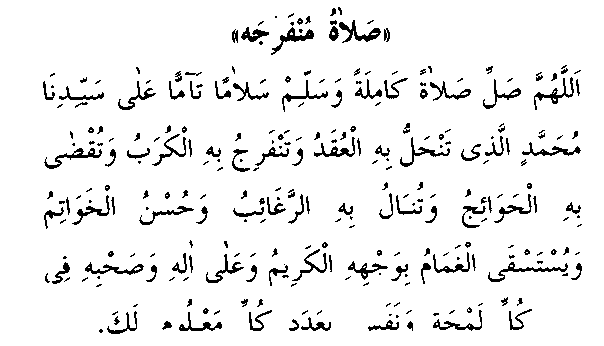 «صَلَاةُ مُنْفَرِجَه»
اَللَّهُمَّ صَلِّ صَلَاةً كَامِلَةً وَسَلِّمْ سَلَامًا تَآمًّا عَلٰى سَيِّدِنَا
مُحَمَّدٍ الَّذِى تَنْحَلُّ بِهِ الْعُقَدُ وَتَنْفَرِجُ بِهِ الْكُرَبُ وَتُقْضٰى
بِهِ الْحَوَائِجُ وَتُنَالُ بِهِ الرَّغَائِبُ وَحُسْنُ الْخَوَاتِمُ
وَيُسْتَسْقَى الْغَمَامُ بِوَجْهِهِ الْكَرِيمُ وَعَلٰى اٰلِهِ وَصَحْبِهِ فِى
كُلِّ لَمْحَةٍ وَنَفَسٍ بِعَدَدِ كُلِّ مَعْلُومٍ لَكَ.